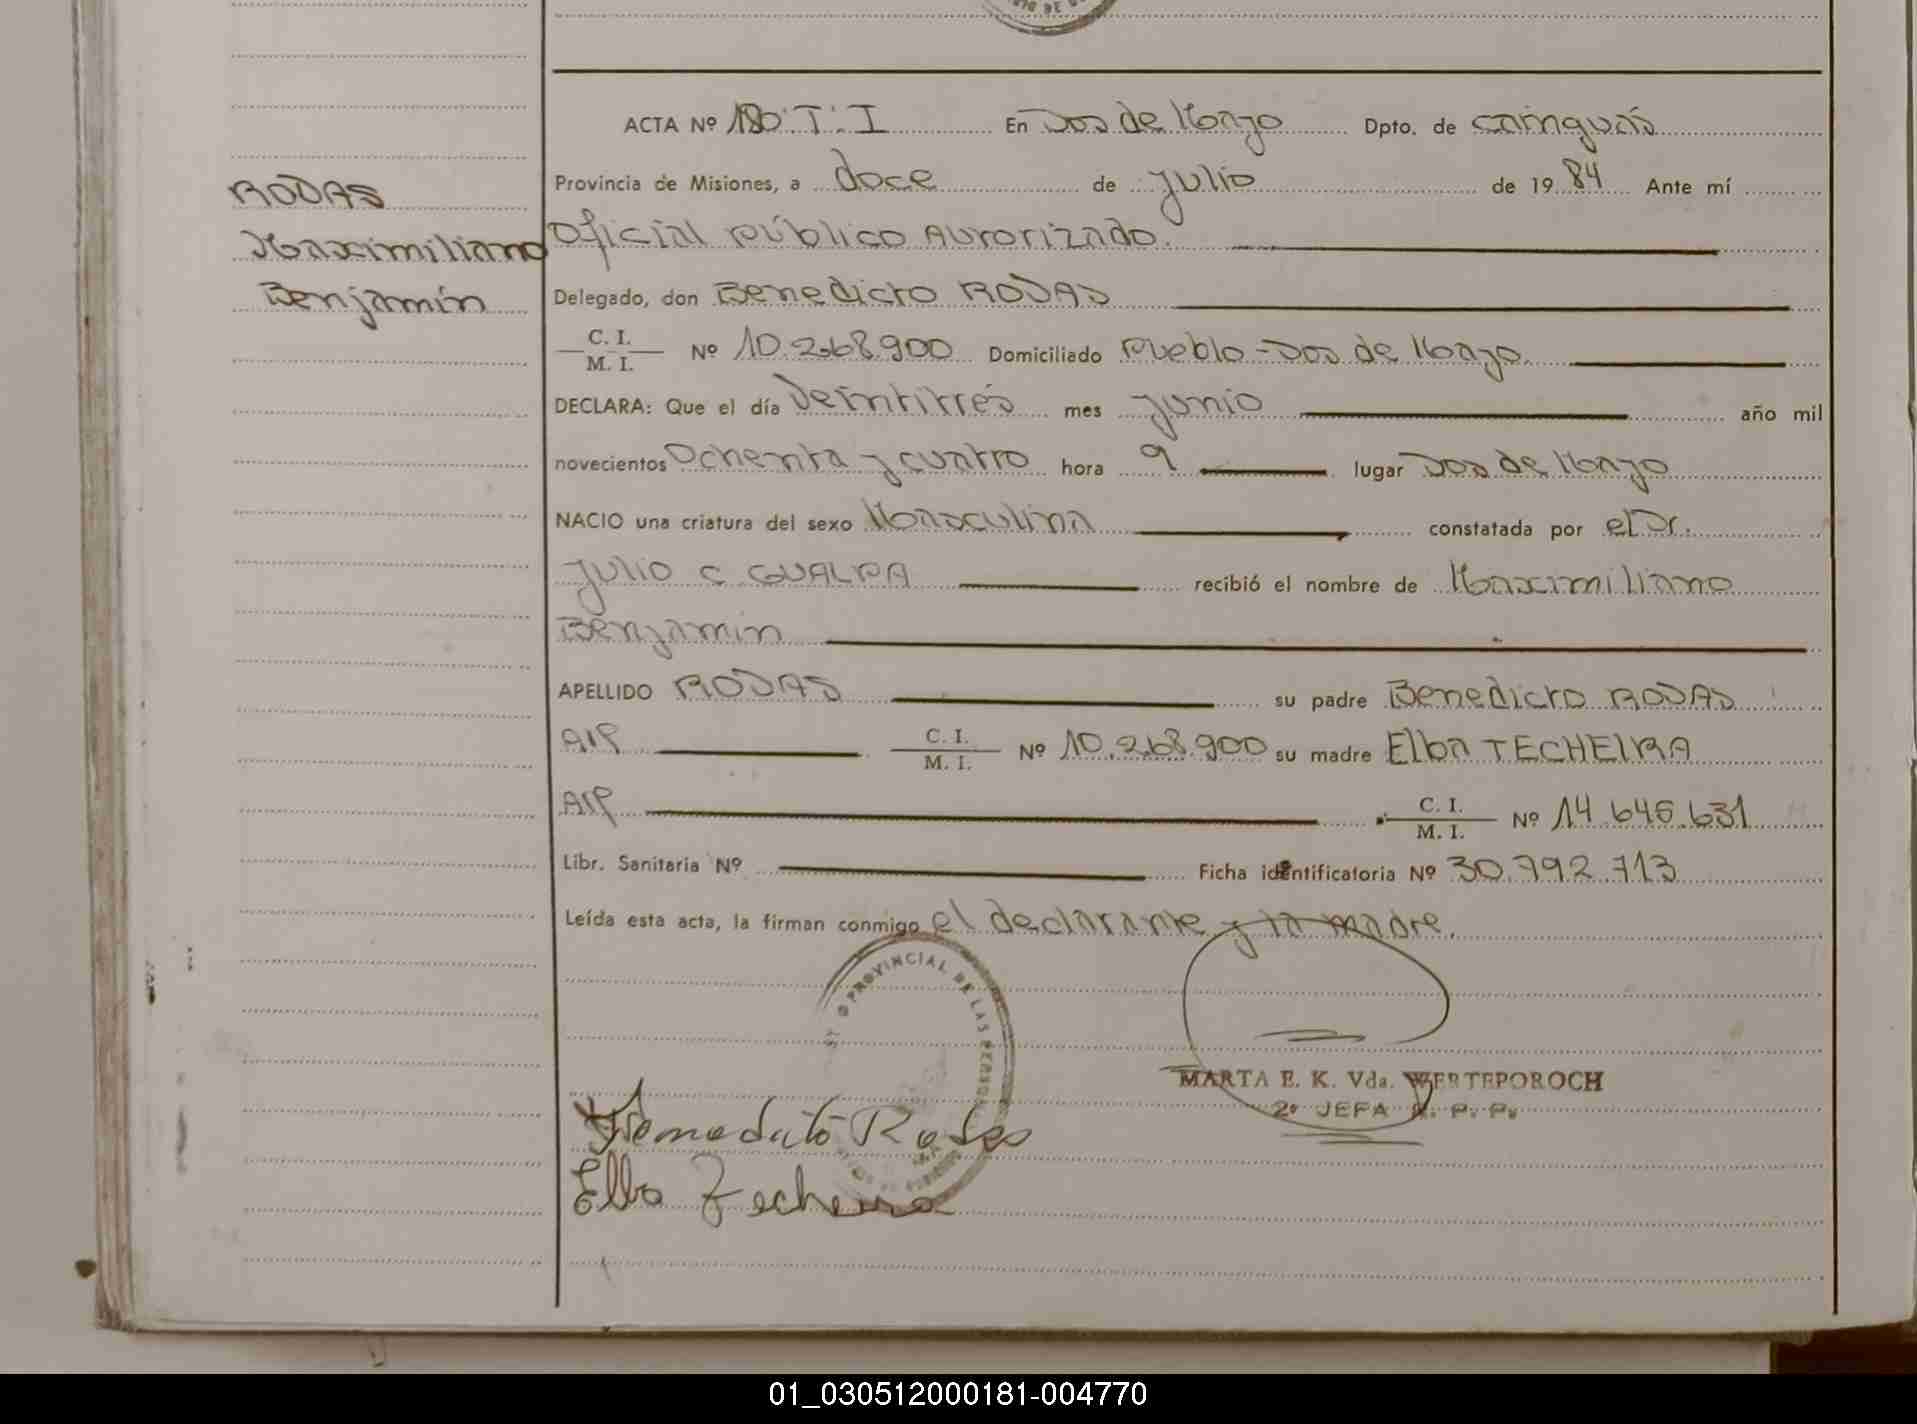 ACTA Nº 180:T:I En Dos de Mayo Dpto. de cainguás
RODAS
Provincia de Misiones, a doce de julio de 1984 Ante mí
Maximiliano
Oficial Público Autorizado.
Benjamín
Delegado, don Benedicto RODAS
C. I.
M. I. Nº 10.268.900 Domiciliado Pueblo - Dos de Mayo.
DECLARA: Que el día Veintitrés mes junio año mil
novecientos Ochenta y cuatro hora 9 lugar Dos de Mayo
NACIO una criatura del sexo Masculina constatada por el Dr.
Julio C GUALPA recibió el nombre de Maximiliano
Benjamin
APELLIDO RODAS su padre Benedicto RODAS
C. I.
M. I. Nº 10.268.900 su madre Elba TECHEIRA
C. I.
M. I. Nº 14 646.631
Libr. Sanitaria Nº Ficha identificatoria Nº 30.792.713
Leída esta acta, la firman conmigo el declarante y la madre.
PROVINCIAL DE LAS PERSONAS
MARTA E. K. Vda. WERTEPOROCH
2º JEFA R. P. P.
Benedicto Rodas
Elba Techeira
01_030512000181-004770